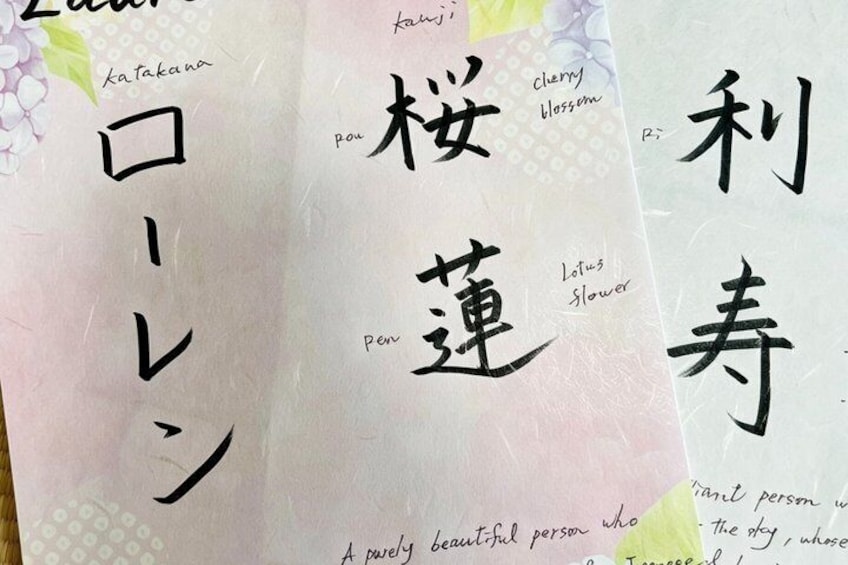 katakana
ローレン
kanji
rou
桜
cherry
blossom
ren
蓮
Lotus
flower
A purely beautiful person who
Ri
利
寿
liant person w
the sky, whose